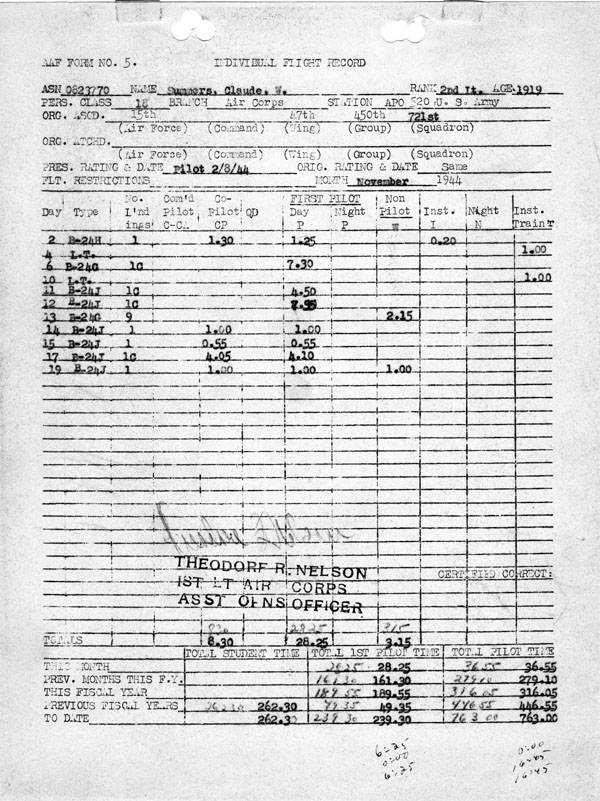 AAF FORM NO. 5. INDIVIDUAL FLIGHT RECORD
ASN 0823770 NAME Summers, Claude, W. RANK 2nd Lt. AGE 1919
PERS. CLASS 18 BRANCH Air Corps STATION APO 520 U. S. Army
ORG. ASGD. 15th 47th 450th 721st
(Air Force) (Command) (Wing) (Group) (Squadron)
ORG. ATCHD.
(Air Force) (Command) (Wing) (Group) (Squadron)
PRES. RATING & DATE Pilot 2/8/44 ORIG. RATING & DATE Same
FLT. RESTRICTIONS MONTH November 1944
No. Com'd Co- FIRST PILOT Non
Day Type L'nd Pilot Pilot QD Day Night Pilot Inst. Night Inst.
ings C-CA CP P P W I N Train'r
2 B-24H 1 1.30 1.25 0.20
4 L.T. 1.00
6 B-24G 1C 7.30
10 L.T. 1.00
11 B-24J 1C 4.50
12 B-24J 1C
13 B-24G 9 2.15
14 B-24J 1 1.00 1.00
15 B-24J 1 0.55 0.55
17 B-24J 1C 4.05 4.10
19 B-24J 1 1.00 1.00 1.00
THEODORE R. NELSON
1ST LT AIR CORPS
ASST OPNS OFFICER
CERTIFIED CORRECT:
830 2825 315
TOTALS 8.30 28.25 3.15
TOTAL STUDENT TIME TOTAL 1ST PILOT TIME TOTAL PILOT TIME
THIS MONTH 2825 28.25 3655 36.55
PREV. MONTHS THIS F.Y. 161 30 161.30 279.10
THIS FISCAL YEAR 189 55 189.55 316 05 316.05
PREVIOUS FISCAL YEARS 262 30 262.30 49 35 49.35 446 55 446.55
TO DATE 262.30 239 30 239.30 763 00 763.00
6:25 0:00
0:00 16:45
6:25 16:45